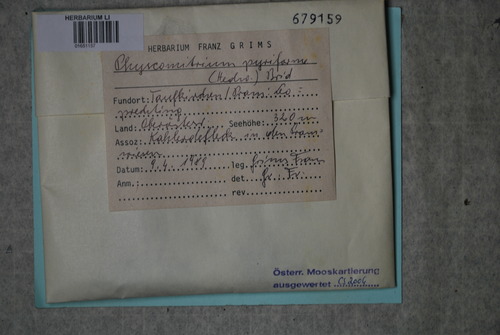 HERBARIUM LI
679159
HERBARIUM FRANZ GRIMS
Physcomitrium pyriforme
(Hedw.) Brid
Fundort: Taufkirchen / Pram:
Land: Oberösterr. Seehöhe: 320 m
Assoz: in den
Datum: 9.4. 1989 leg. Grims Franz
Anm.: det. Gr. Fr.
rev.
Österr. Mooskartierung
ausgewertet